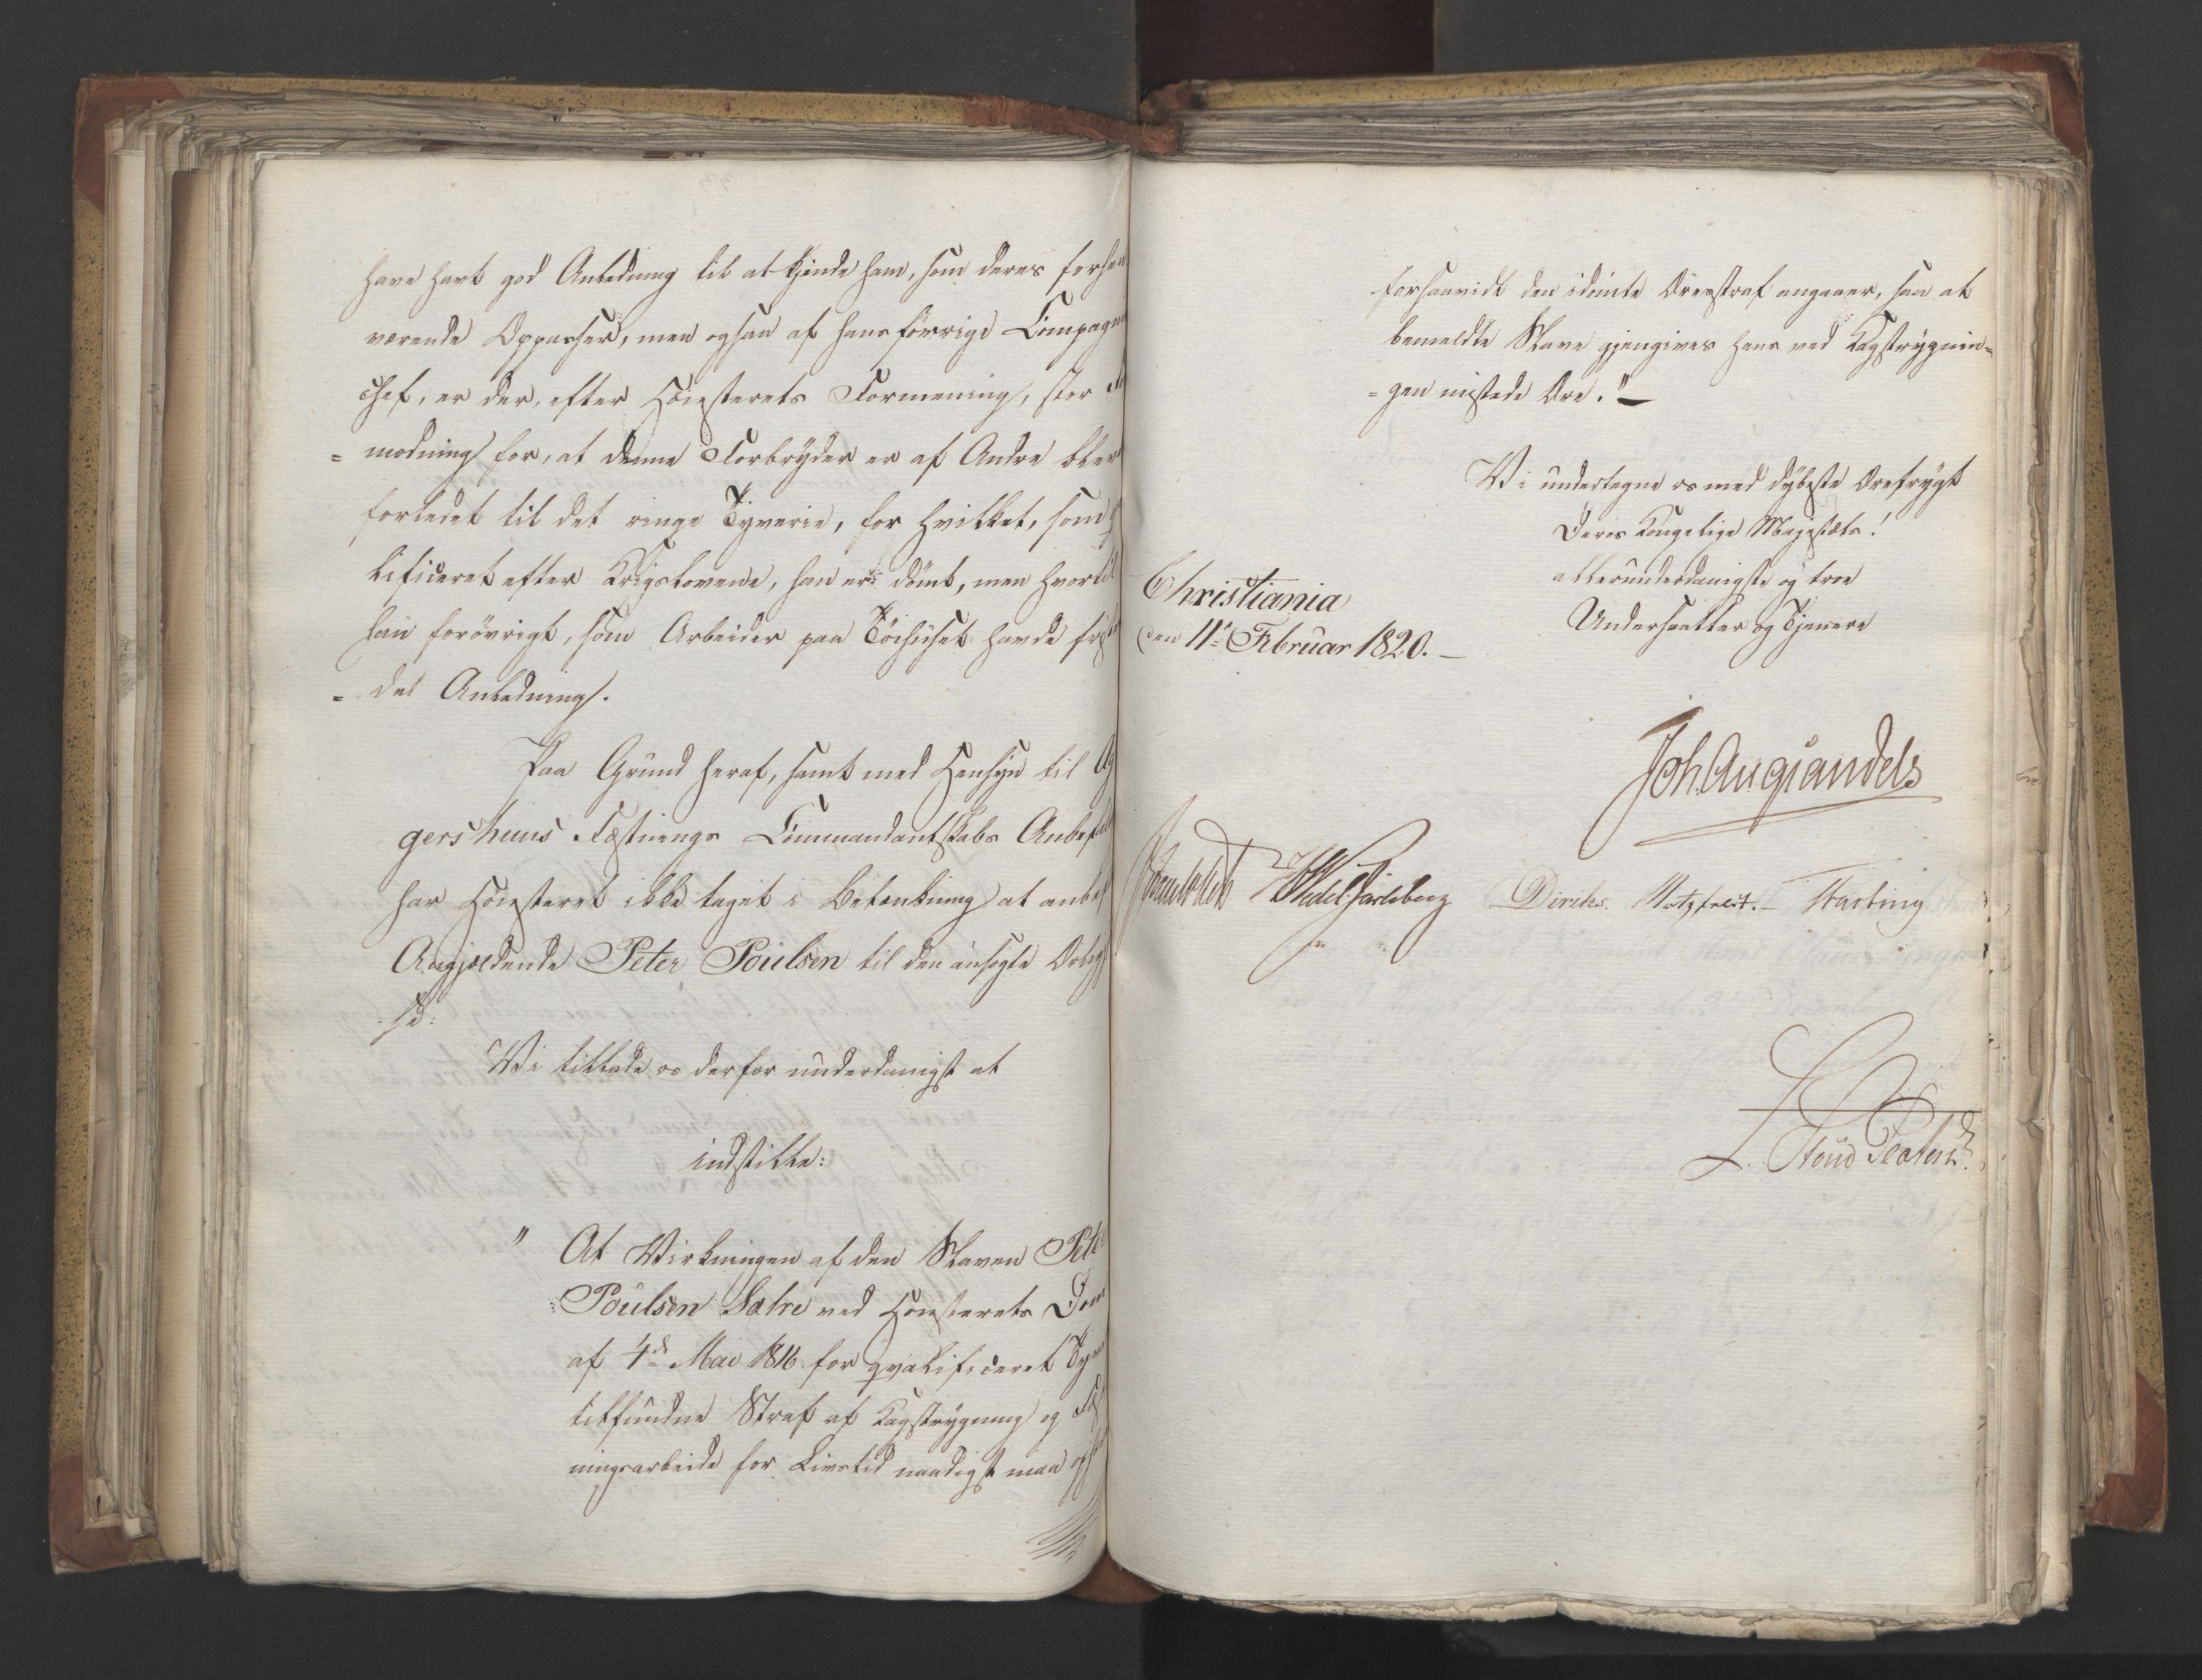 have havt god Anledning til at kjende ham, som deres forhen
værende Oppasser, men ogsaa af hans forrige Compagni
Chef, er der, efter Høiesterets Formening, stor
= modning for, at denne Forbryder er af Andre blev
forledet til det ringe Tyverie, for hvilket, som
lificeret efter Krigslovene, han er dömt, men hvortil
han forövrigt, som Arbeider paa Töihuset havde
= del Anledning.
Paa Grund heraf, samt med Hensyn til Ag
gershuus Fæstnings Commandantskabs Anbefal
har Höiesteret ikke taget i Betænkning at anbef
Angjældende Peter Poulsen til den ansøgte
se:
Vi tillade os derfor underdanigst at
indstille:
" At Virkningen af den Slaven Peter
Poulsen Satre ved Höiesterets Dom
af 4de Mai 1816 for qvalificeret Tyve
tilfundne Straf af Kagstrygning og Fæst
ningsarbeide for Livstid naadigst maa
forsaavidt den idömte Æresstraf angaaer, saa at
bemeldte Slave gjengives hans ved Kagstrygnin=
=gen mistede Ære." —
Vi undertegne os med dybeste Ærefrygt
Deres Kongelige Majestæts!
allerunderdanigste og troe
Undersaatter og Tjenere
Christiania
den 11te Februar 1820. —
Joh. Aug. Sandels
Sommerhielm Wedel Jarlsberg Diriks. Motzfeldt. — Fasting
L. Stoud Platou